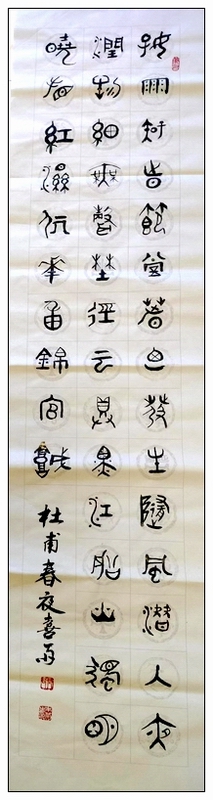 好雨知時節當春乃發生隨風潛入夜
潤物細無聲埜徑云俱黑江船火獨明
曉看紅濕處花重錦官城
杜甫春夜喜雨